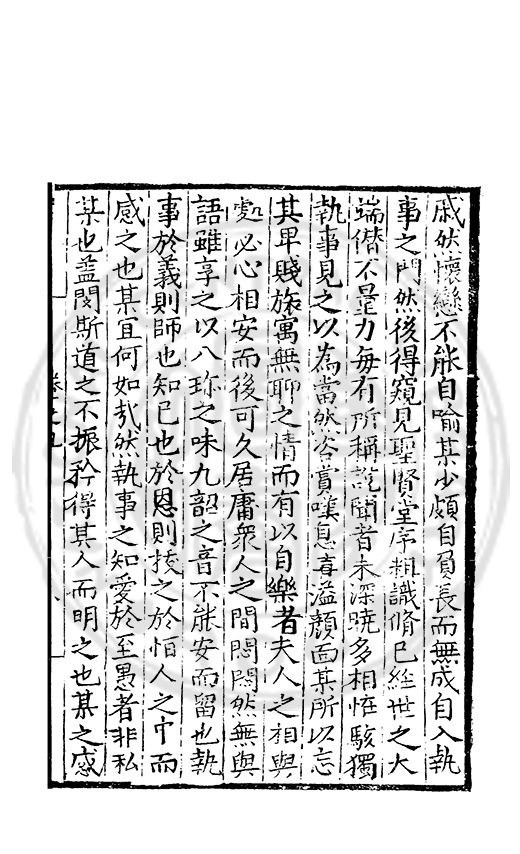 戚然懷戀不能自喻某少頗自負長而無成自入執
事之門然後得窺見聖賢堂序粗識脩已經世之大
端僣不量力每有所稱說聞者未深曉多相恠駭獨
執事見之以為當然咨賞嘆息喜溢顏面某所以忘
其卑賤旅寓無聊之情而有以自樂者夫人之相與
處必心相安而後可久居庸衆人之間悶悶然無與
語雖享之以八珎之味九韶之音不能安而留也執
事於義則師也知已也於恩則拔之於恒人之中而
感之也某宜何如哉然執事之知愛於至愚者非私
某也盖閔斯道之不振矜得其人而明之也某之感